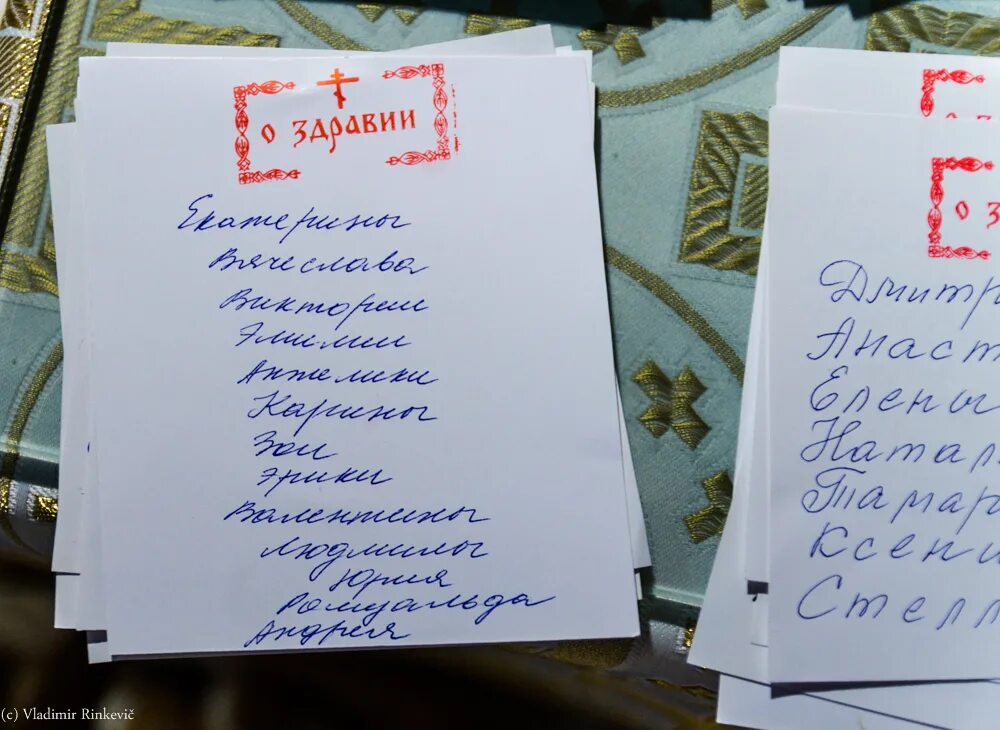 О ЗДРАВИИ
Екатерины
Вячеслава
Виктории
Эмилии
Анжелики
Карины
Зои
Эрики
Валентины
Людмилы
Юрия
Ромуальда
Андрея
О З
Дмитр
Анаст
Елены
Натал
Тамар
Ксени
Стелл
(c) Vladimir Rinkevič